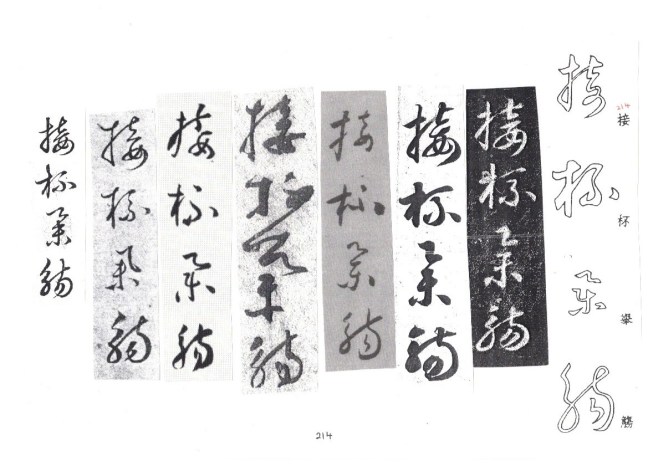 214
接杯舉觴
接杯舉觴
接杯舉觴
接杯舉觴
接杯舉觴
接杯舉觴
接杯舉觴
接杯舉觴
接杯舉觴
214